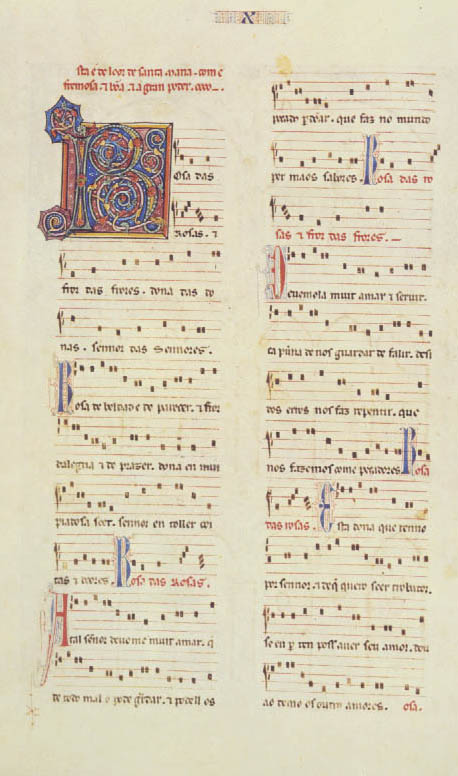 X
sta e de loor de santa maria com é
fremosa . ⁊ bõa . ⁊ a gran poder.
Rosa das
rosas . ⁊
fror das frores . dona das do
nas . sennor das sennores .
Rosa de beldad e de parecer . ⁊ fror
dalegria ⁊ de prazer . dona en mui
piadosa seer . sennor en toller coi
tas ⁊ doores . Rosa das rosas .
Atal sẽnor deue ome muit amar . q̃
de todo mal o pode g̃rdar . ⁊ pode ll os
pecados p̃dõar . que faz no mundo
per maos sabores . Rosa das ro
sas ⁊ fror das frores .
Deuemola muit amar ⁊ seruir .
ca punna de nos guardar de falir . desi
dos erros nos faz repentir . que
nos fazemos come pecadores Rosa
das rosas . Esta dona que tenno
por sennor . ⁊ de q̃ quero seer trobador .
se eu per ren poss auer seu amor . dou
ao demo os outros amores . osa .